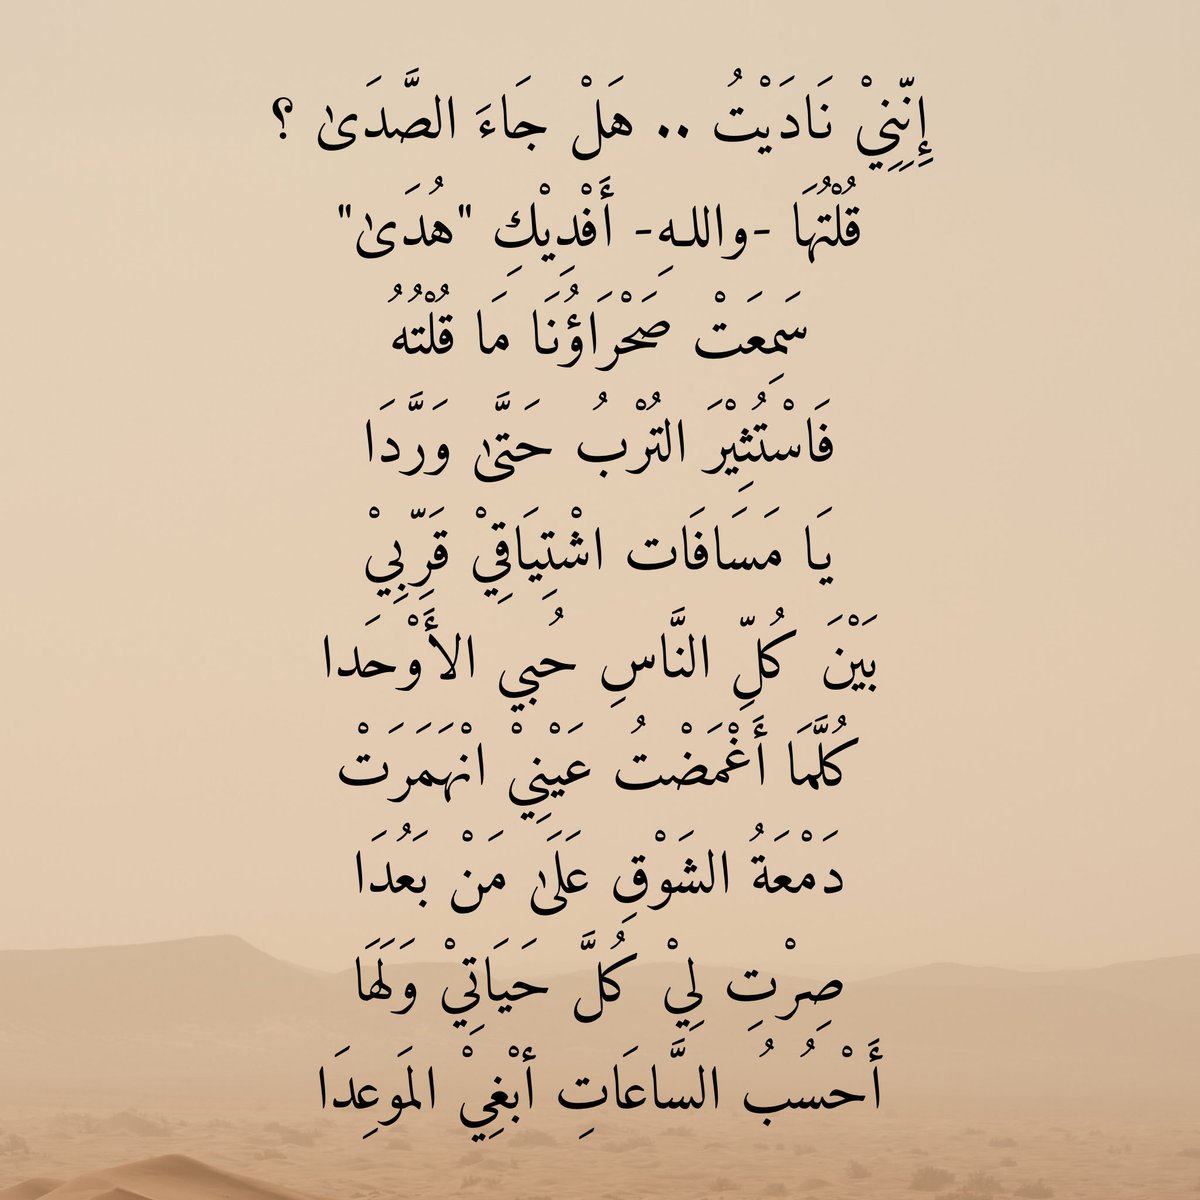 إِنِّنِيْ نَادَيْتُ .. هَلْ جَاءَ الصَّدَىٰ ؟
قُلْتُهَا -واللهِ- أَفْدِيْكِ "هُدَىٰ"
سَمِعَتْ صَحْرَاؤُنَا مَا قُلْتُهُ
فَاسْتُثِيْرَ التُرْبُ حَتَّىٰ وَرَّدَا
يَا مَسَافَات اشْتِيَاقِيْ قَرِّبِيْ
بَيْنَ كُلِّ النَّاسِ حُبي الأَوْحَدا
كُلَّمَا أَغْمَضْتُ عَيْنِيْ انْهَمَرَتْ
دَمْعَةُ الشَوْقِ عَلَىٰ مَنْ بَعُدَا
صِرْتِ لِيْ كُلَّ حَيَاتِيْ وَلَهَا
أَحْسُبُ السَّاعَاتِ أبْغِيْ المَوعِدَا